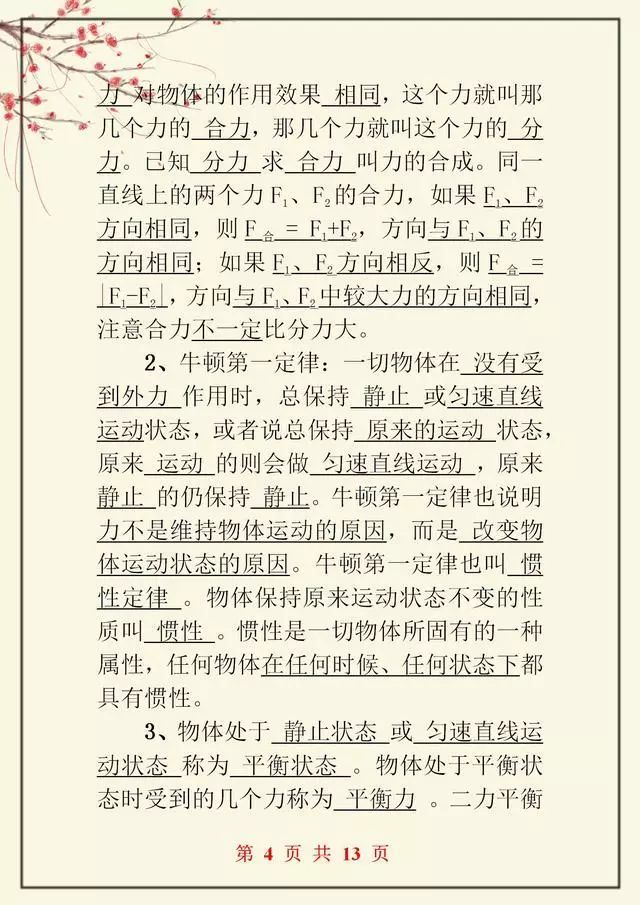 力 对物体的作用效果 相同，这个力就叫那
几个力的 合力，那几个力就叫这个力的 分
力。已知 分力 求 合力 叫力的合成。同一
直线上的两个力F₁、F₂的合力，如果F₁、F₂
方向相同，则F合 = F₁+F₂，方向与F₁、F₂的
方向相同；如果F₁、F₂方向相反，则F合 =
|F₁-F₂|，方向与F₁、F₂中较大力的方向相同，
注意合力不一定比分力大。
2、牛顿第一定律：一切物体在 没有受
到外力 作用时，总保持 静止 或匀速直线
运动状态，或者说总保持 原来的运动 状态，
原来 运动 的则会做 匀速直线运动 ，原来
静止 的仍保持 静止。牛顿第一定律也说明
力不是维持物体运动的原因，而是 改变物
体运动状态的原因。牛顿第一定律也叫 惯
性定律 。物体保持原来运动状态不变的性
质叫 惯性 。惯性是一切物体所固有的一种
属性，任何物体在任何时候、任何状态下都
具有惯性。
3、物体处于 静止状态 或 匀速直线运
动状态 称为 平衡状态 。物体处于平衡状
态时受到的几个力称为 平衡力 。二力平衡
第 4 页 共 13 页